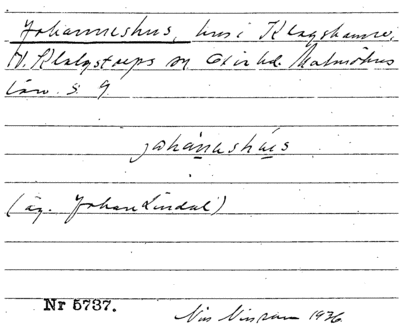 Johanneshus, hus i Klagshamn,
V. Klagstorps sn Oxie hd. Malmöhus
län. s. 9
johánashás
(äg. Johan Lindal)
Nr 5737.
Nils 1936